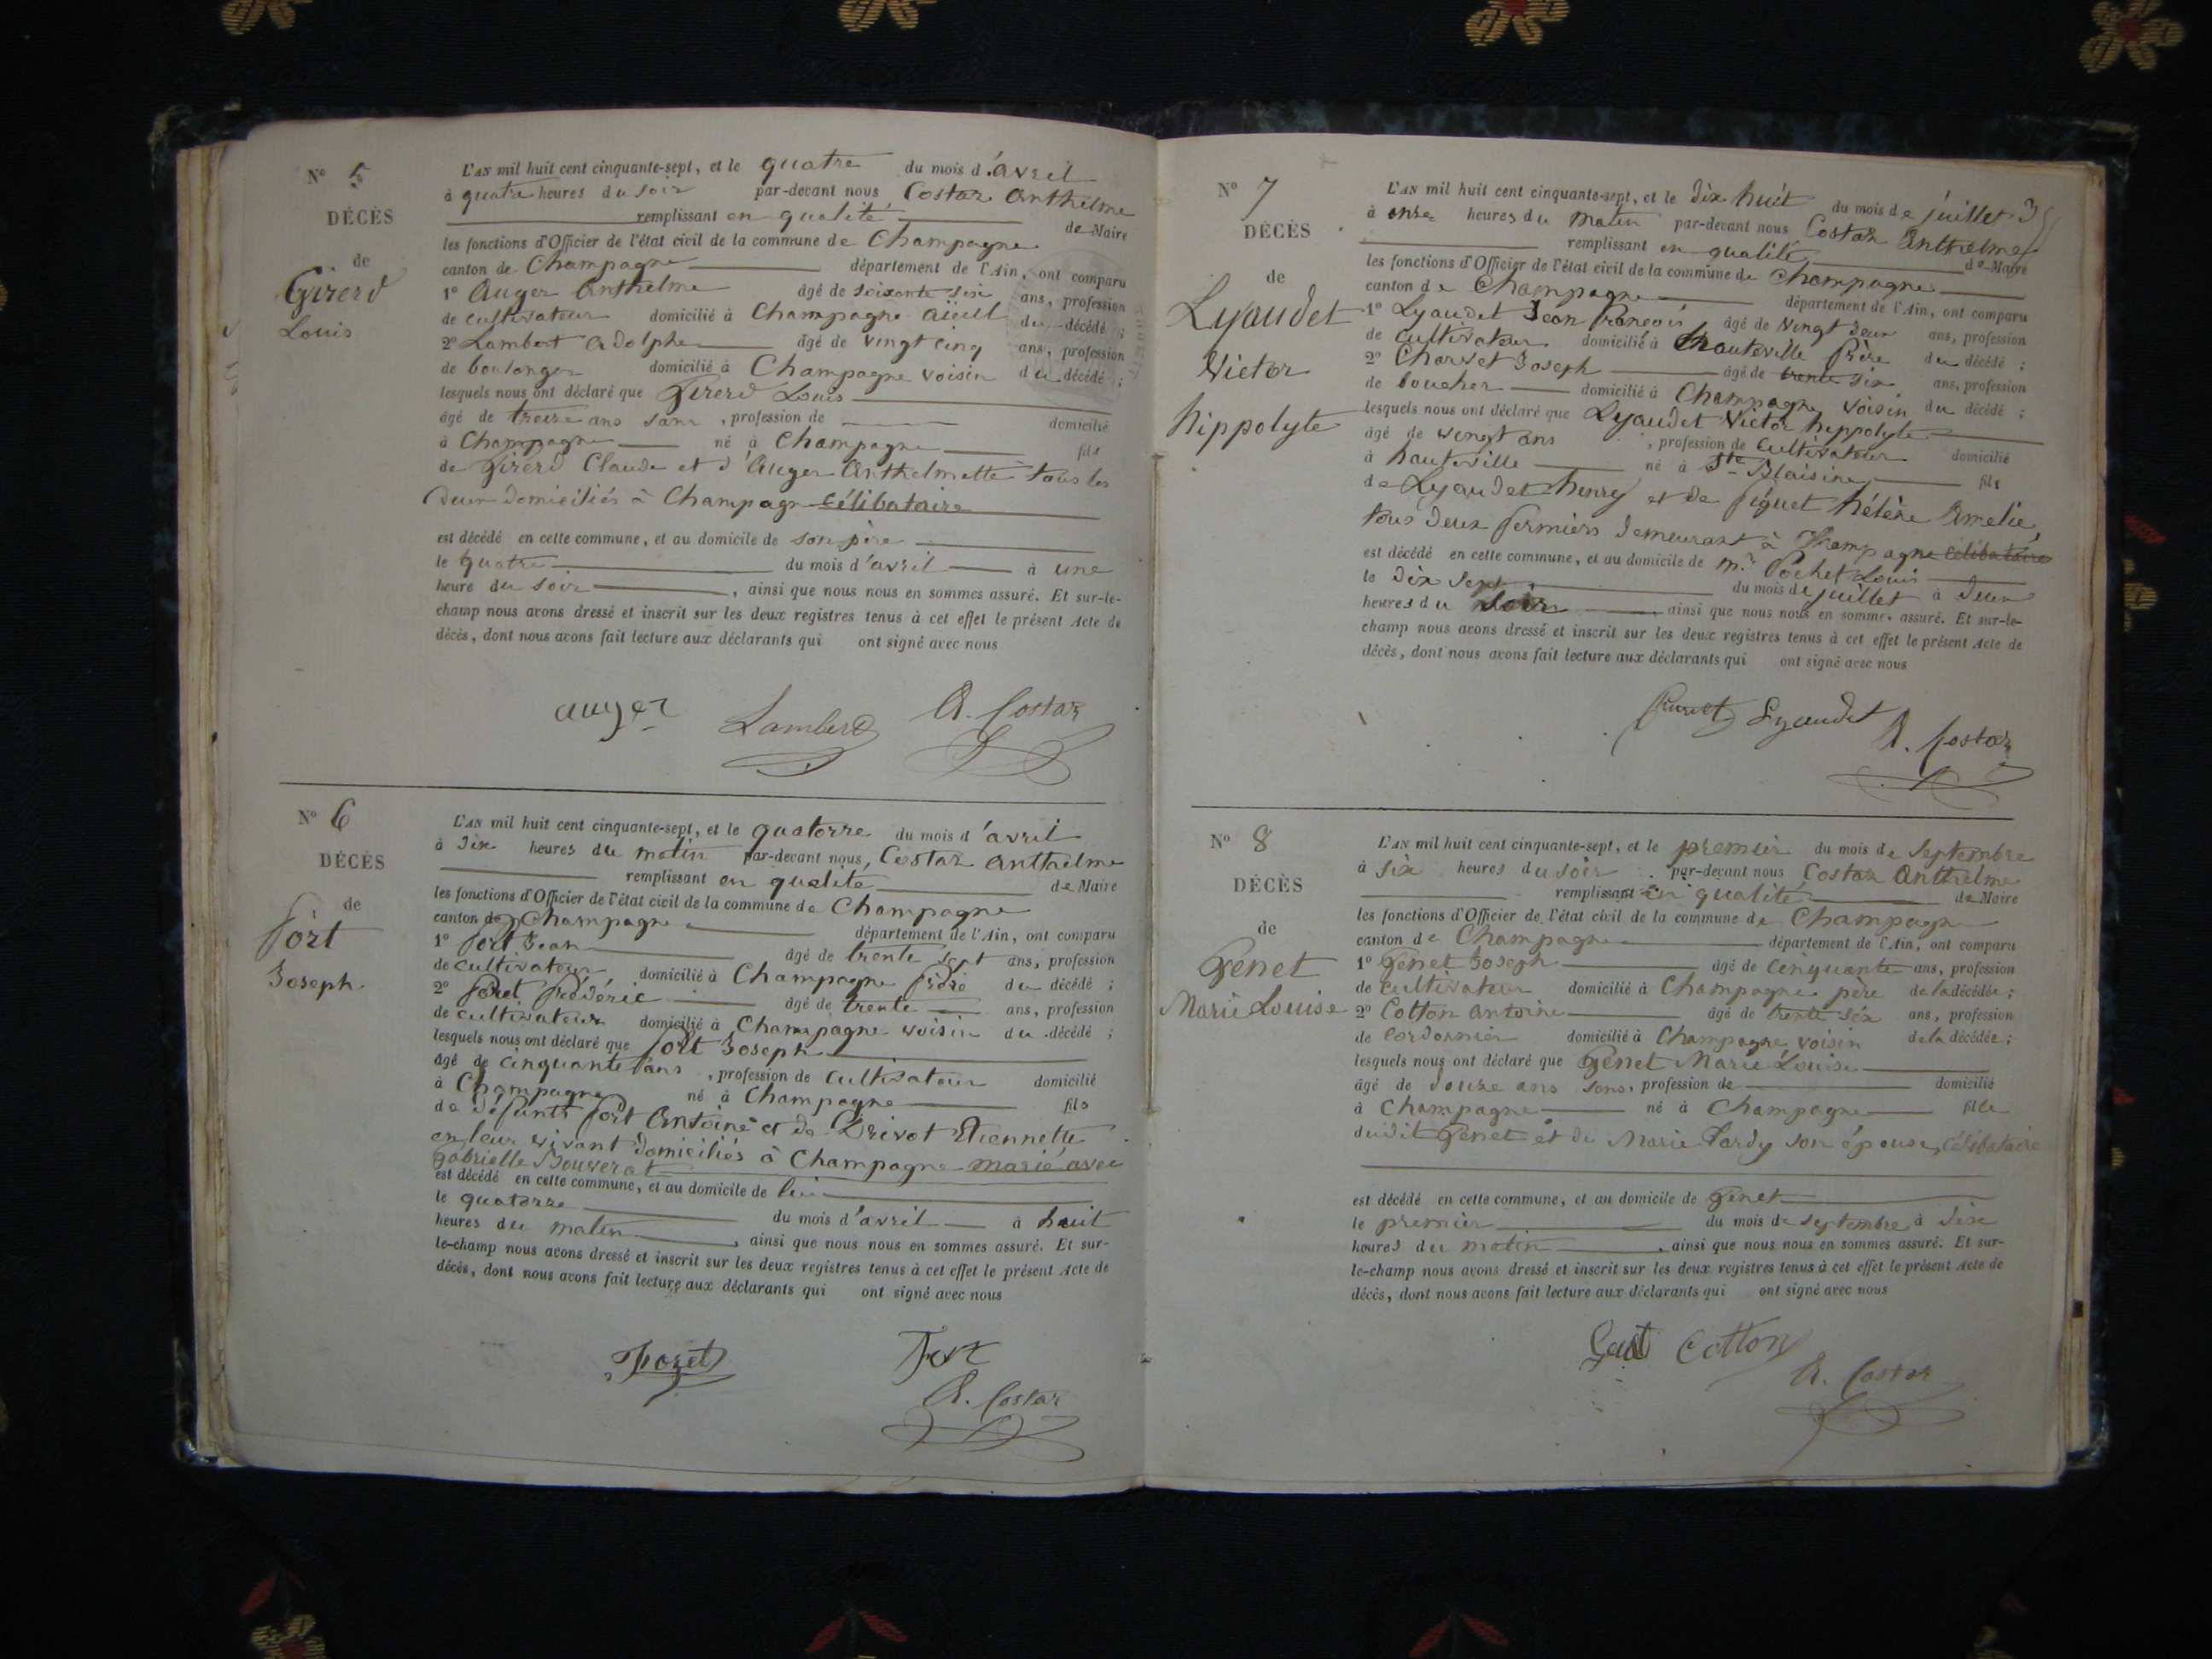 N° 5
DÉCÈS
de
Girerd
Louis
L'AN mil huit cent cinquante-sept, et le quatre du mois d'avril
à quatre heures du soir par-devant nous Costaz Anthelme
remplissant en qualité de Maire
les fonctions d'Officier de l'état civil de la commune de Champagne
canton de Champagne département de l'Ain, ont comparu
1° Auger Anthelme âgé de soixante six ans, profession
de cultivateur domicilié à Champagne aieul du décédé ;
2° Lambert Adolphe âgé de vingt cinq ans, profession
de boulanger domicilié à Champagne voisin du décédé ;
lesquels nous ont déclaré que Girerd Louis
âgé de treize ans sans, profession de domicilié
à Champagne né à Champagne fils
de Girerd Claude et d'Auger Anthelmette tous les
deux domiciliés à Champagne célibataire
est décédé en cette commune, et au domicile de son père
le quatre du mois d'avril à une
heure du soir, ainsi que nous nous en sommes assuré. Et sur-le-
champ nous avons dressé et inscrit sur les deux registres tenus à cet effet le présent Acte de
décès, dont nous avons fait lecture aux déclarants qui ont signé avec nous
auger Lambert A. Costaz
N° 6
DÉCÈS
de
Fort
Joseph
L'AN mil huit cent cinquante-sept, et le quatorze du mois d'avril
à dix heures du matin par-devant nous, Costaz Anthelme
remplissant en qualité de Maire
les fonctions d'Officier de l'état civil de la commune de Champagne
canton de Champagne département de l'Ain, ont comparu
1° Fort Jean âgé de trente sept ans, profession
de cultivateur domicilié à Champagne frère du décédé ;
2° Foret Frédéric âgé de trente ans, profession
de cultivateur domicilié à Champagne voisin du décédé ;
lesquels nous ont déclaré que Fort Joseph
âgé de cinquante ans, profession de cultivateur domicilié
à Champagne né à Champagne fils
de défunts Fort Antoine et de Drivot Etiennette
en leur vivant domiciliés à Champagne marié avec
Gabrielle Bouverat
est décédé en cette commune, et au domicile de lui
le quatorze du mois d'avril à huit
heures du matin, ainsi que nous nous en sommes assuré. Et sur-
le-champ nous avons dressé et inscrit sur les deux registres tenus à cet effet le présent Acte de
décès, dont nous avons fait lecture aux déclarants qui ont signé avec nous
Foret Fort
A. Costaz
N° 7
DÉCÈS
de
Lyaudet
Victor
hippolyte
L'AN mil huit cent cinquante-sept, et le dix huit du mois de juillet
à onze heures du matin par-devant nous Costaz Anthelme
remplissant en qualité de Maire
les fonctions d'Officier de l'état civil de la commune de Champagne
canton de Champagne département de l'Ain, ont comparu
1° Lyaudet Jean François âgé de vingt deux ans, profession
de cultivateur domicilié à hauteville frère du décédé ;
2° Charvet Joseph âgé de trente six ans, profession
de boucher domicilié à Champagne voisin du décédé ;
lesquels nous ont déclaré que Lyaudet Victor hippolyte
âgé de vingt ans, profession de cultivateur domicilié
à hauteville né à Ste Blaisine fils
de Lyaudet henry et de Piquet hélène Amelie
tous deux fermiers demeurant à Champagne célibataire
est décédé en cette commune, et au domicile de Mr Pochet Louis
le dix sept du mois de juillet à deux
heures du soir, ainsi que nous nous en sommes assuré. Et sur-le-
champ nous avons dressé et inscrit sur les deux registres tenus à cet effet le présent Acte de
décès, dont nous avons fait lecture aux déclarants qui ont signé avec nous
Lyaudet
A. Costaz
N° 8
DÉCÈS
de
Genet
Marie Louise
L'AN mil huit cent cinquante-sept, et le premier du mois de septembre
à six heures du soir par-devant nous Costaz Anthelme
remplissant en qualité de Maire
les fonctions d'Officier de l'état civil de la commune de Champagne
canton de Champagne département de l'Ain, ont comparu
1° Genet Joseph âgé de cinquante ans, profession
de cultivateur domicilié à Champagne père de la décédée ;
2° Cotton Antoine âgé de trente six ans, profession
de cordonnier domicilié à Champagne voisin de la décédée ;
lesquels nous ont déclaré que Genet Marie Louise
âgé de douze ans sans, profession de domicilié
à Champagne né à Champagne fille
dudit Genet et de Marie Tardy son épouse, célibataire
est décédé en cette commune, et au domicile de Genet
le premier du mois de septembre à dix
heures du matin, ainsi que nous nous en sommes assuré. Et sur-
le-champ nous avons dressé et inscrit sur les deux registres tenus à cet effet le présent Acte de
décès, dont nous avons fait lecture aux déclarants qui ont signé avec nous
Cotton
A. Costaz